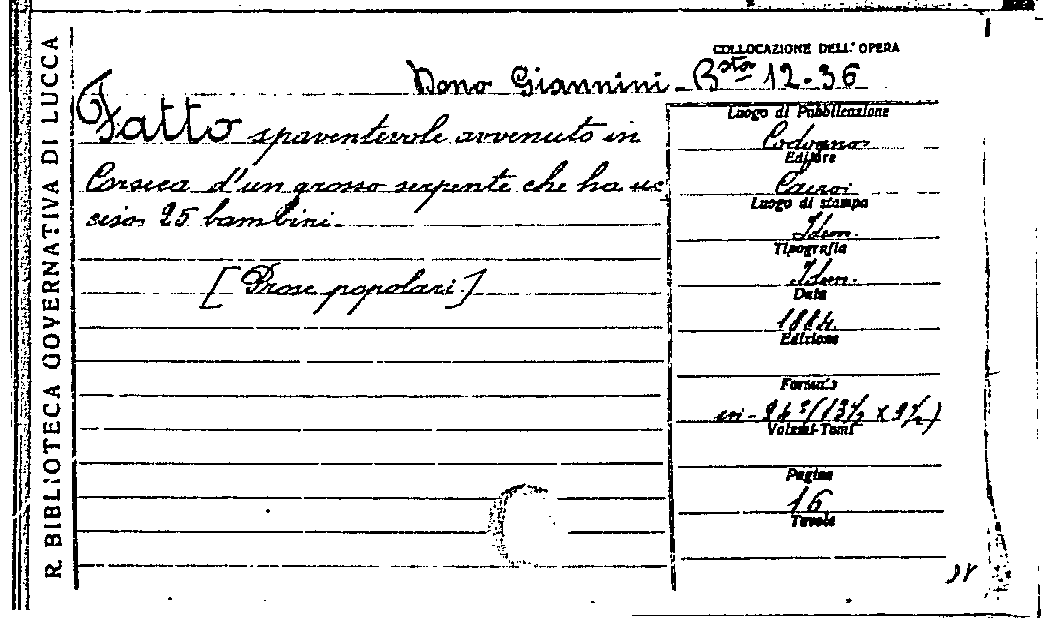 R. BIBLIOTECA GOVERNATIVA DI LUCCA
COLLOCAZIONE DELL'OPERA
Dono Giannini - Bsta 12-36
Fatto spaventevole avvenuto in
Corsica d'un grosso serpente che ha uc
ciso 25 bambini.
[Prose popolari]
Luogo di Pubblicazione
Codogno
Editore
Cairo
Luogo di stampa
Idem.
Tipografia
Idem.
Data
1884
Edizione
Formato
in-24° (13½ x 9½)
Volumi-Tomi
Pagine
16
Tavole